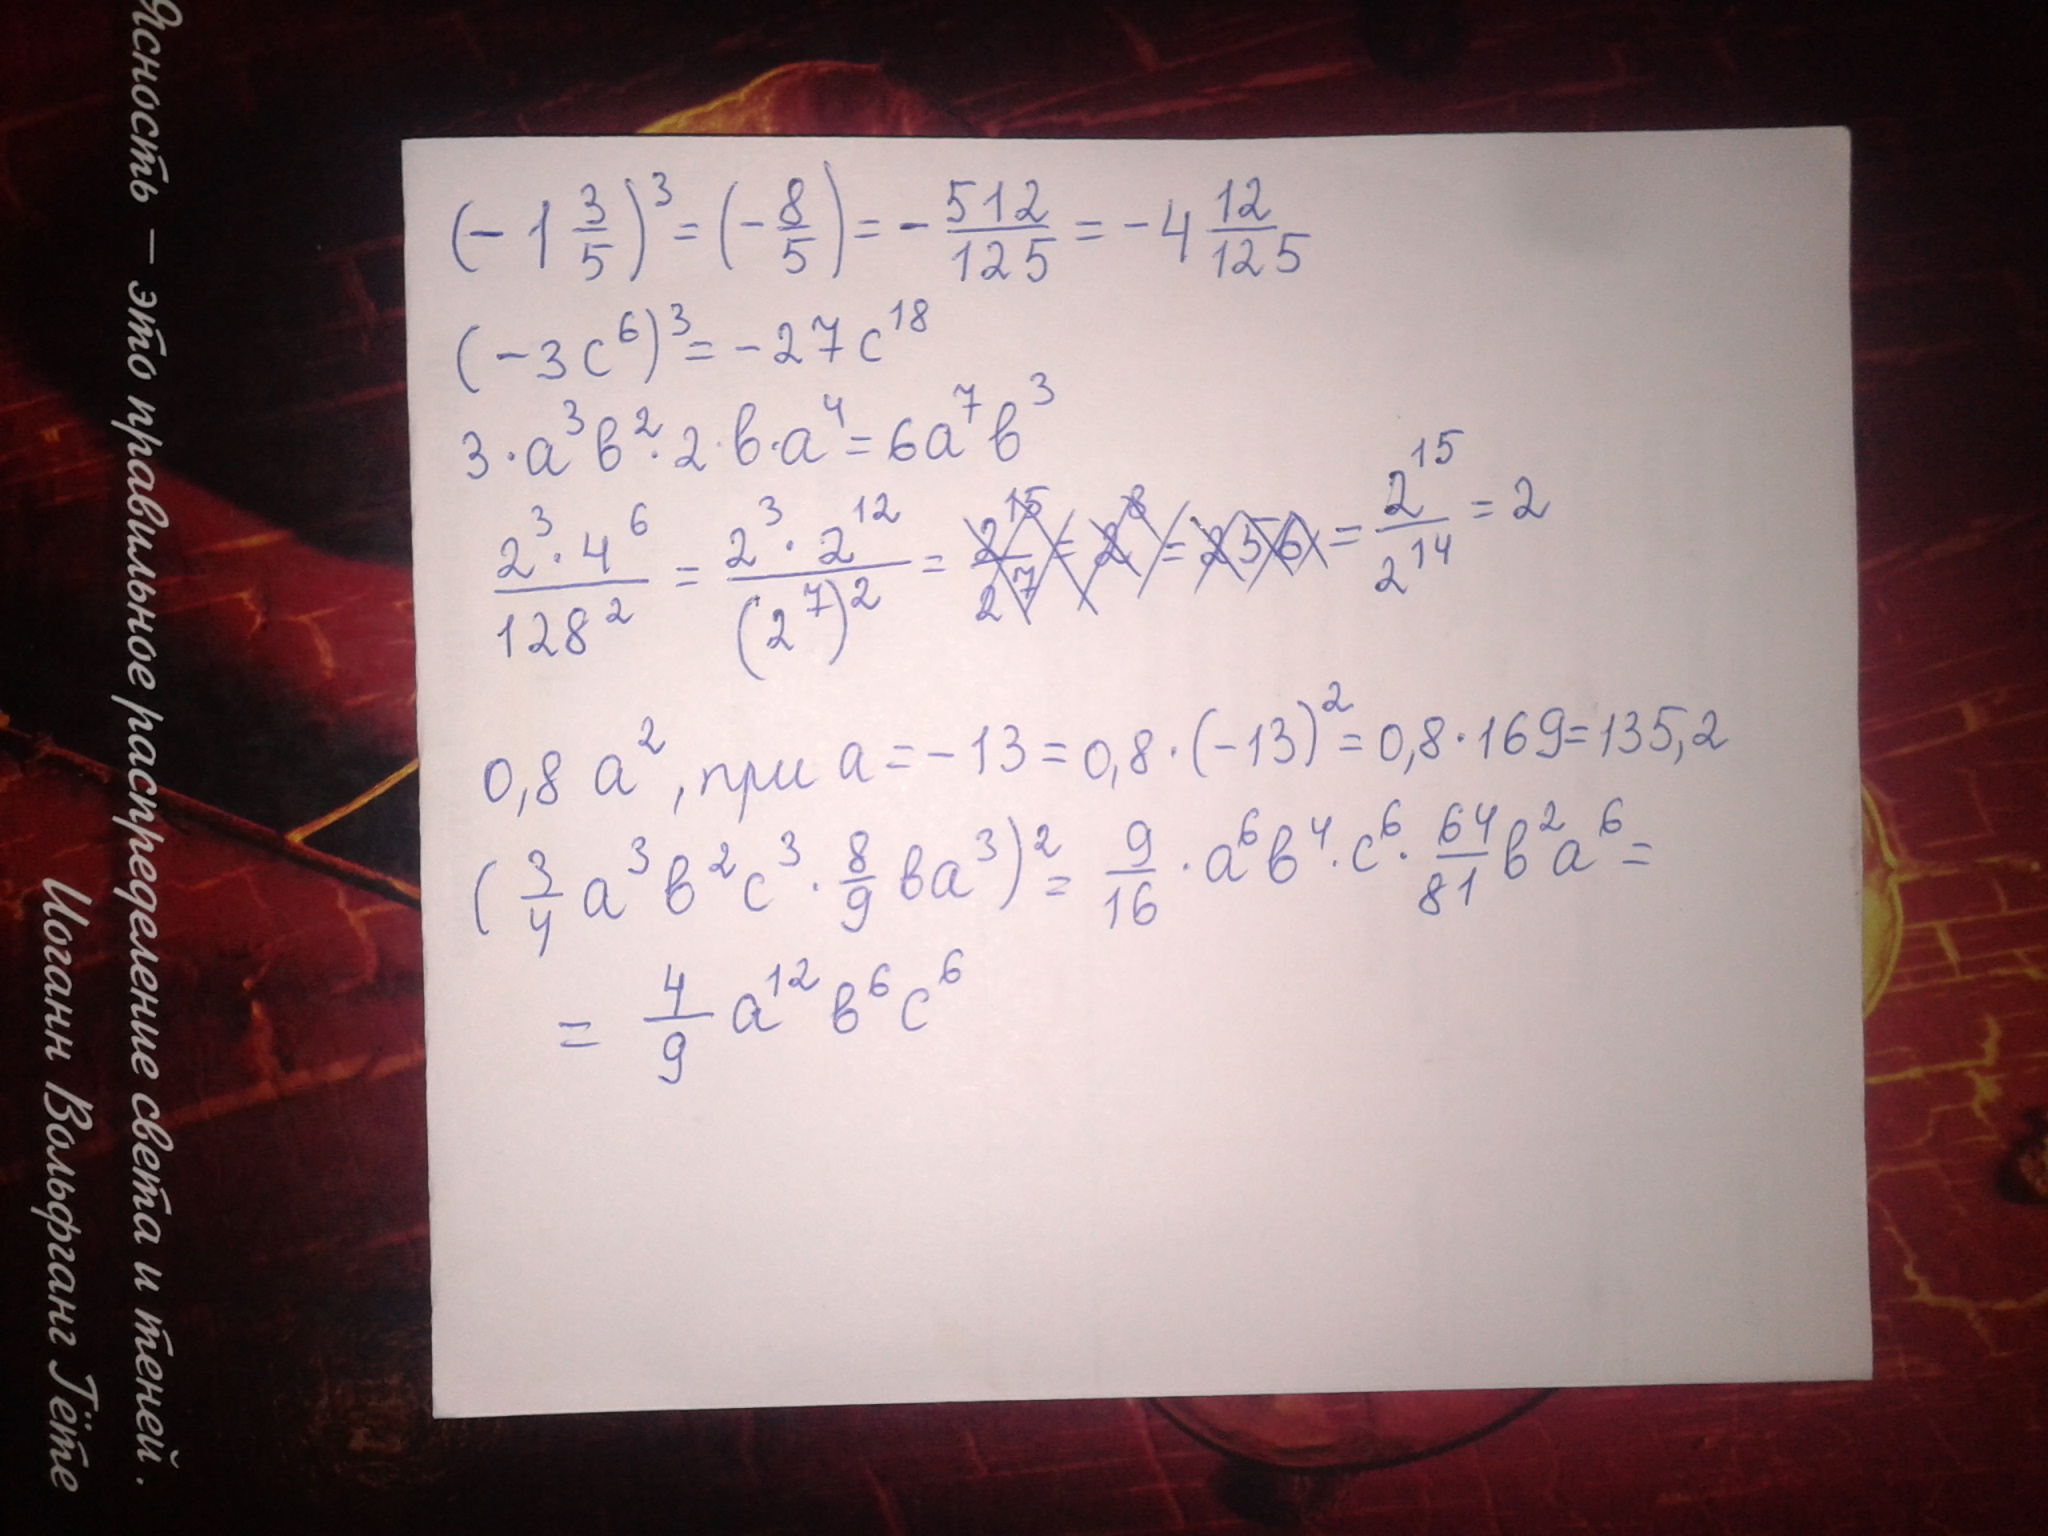 (-1 3/5)³ = (-8/5) = - 512/125 = -4 12/125
(-3c⁶)³ = -27c¹⁸
3·a³в²·2·в·a⁴ = 6a⁷в³
2³·4⁶/128² = 2³·2¹²/(2⁷)² = 2¹⁵/2⁷ = 2⁸ = 256 = 2¹⁵/2¹⁴ = 2
0,8 a², при a = -13 = 0,8·(-13)² = 0,8·169 = 135,2
(3/4 a³в²c³ · 8/9 вa³)² = 9/16 · a⁶в⁴·c⁶· 64/81 в²a⁶ =
= 4/9 a¹²в⁶c⁶
Ясность – это правильное распределение света и теней.
Иоганн Вольфганг Гёте